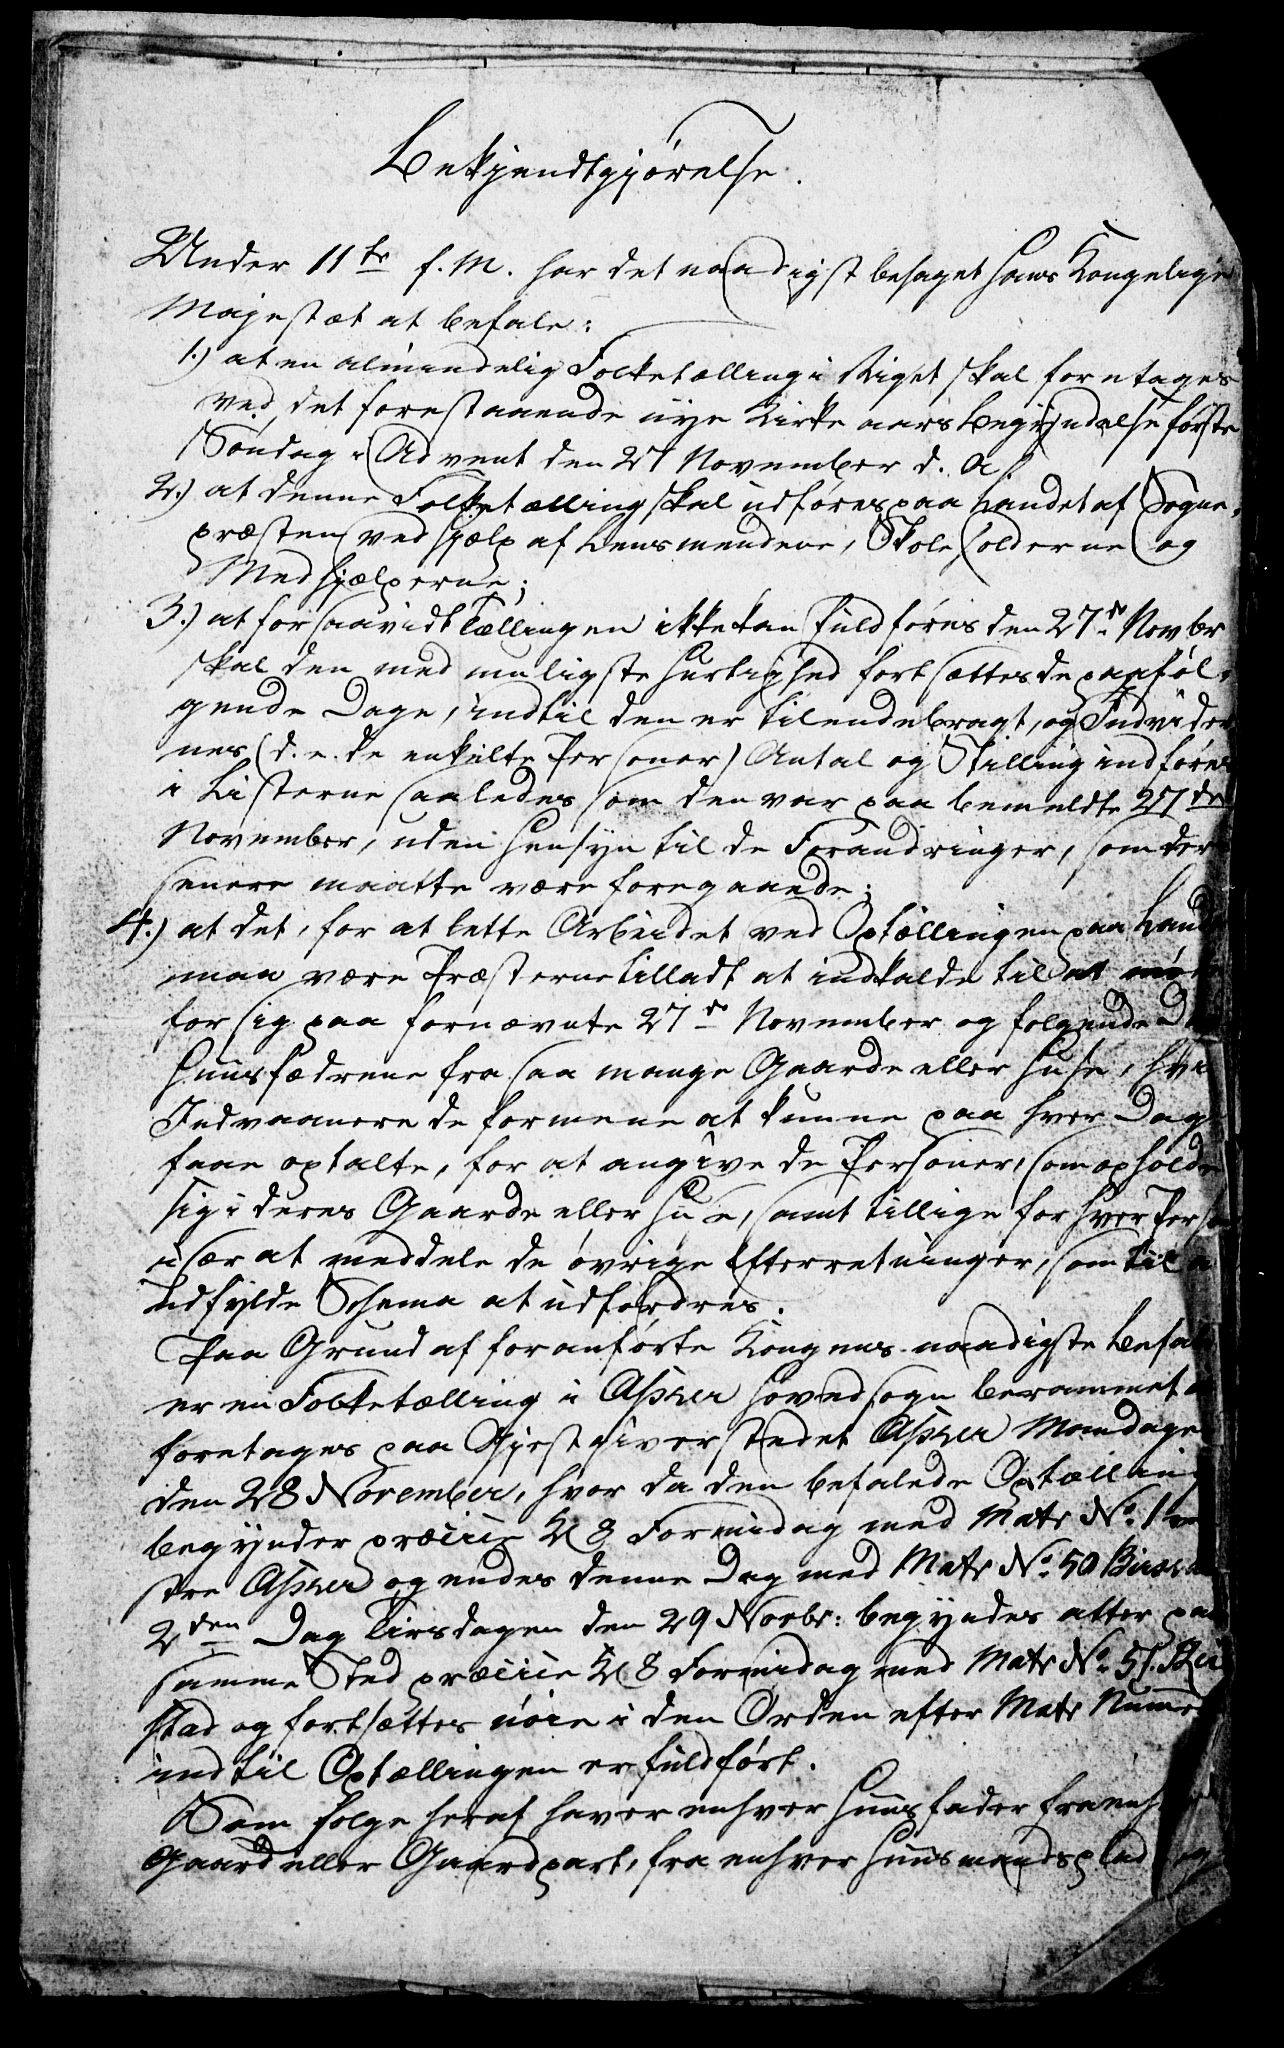 Bekjendtgjørelse.
Under 11te f. M. har det naadigst behaget Hans Kongelige
Majestæt at befale:
1.) at en almindelig Folketælling i Riget skal foretages
ved det forestaaende nye Kirke aars Begyndelse første
Søndag i Advent den 27 November d. A.
2.) at denne Folketælling skal udføres paa Landet af Sogne-
præsten ved Hjælp af Lensmændene, Skoleholderne og
Medhjælperne;
3.) at forsaavidt Tællingen ikke kan fuldføres den 27de Novbr
skal den med muligste Hurtighed fortsættes de paaføl-
gende Dage, indtil den er tilendebragt, og Individer
nes (d. e. de enkelte Personer) Antal og Stilling indføres
i Listerne saaledes som den var paa bemeldte 27de
November, uden Hensyn til de Forandringer, som der
senere maatte være foregaaede;
4.) at det, for at lette Arbeidet ved Optællingen paa Landet
maa være Præsterne tilladt at indkalde til at møde
for sig paa fornævnte 27de November og følgende Da
Huusfædrene fra saa mange Gaarde eller Huse, hvis
Indvaanere de formene at kunne paa hver Dag
faae optalte, for at angive de Personer, som opholde
sig i deres Gaarde eller Huse, samt tillige for hver Person
især at meddele de øvrige Efterretninger, som til a
udfylde Schema at udfordres.
Paa Grund af foranførte Kongens naadigste Befal
er en Folketælling i Asker Hovedsogn berammet at
foretages paa Gjestgiverstedet Asker Mandagen
den 28 November, hvor da den befalede Optælling
begynder præcise Kl 8 Formidag med Matr No. 1
stre Asker og endes denne Dag med Matr No. 50
2den Dag Tirsdagen den 29 Novbr: begyndes atter paa
samme Sted præcise Kl 8 Formidag med Matr No. 51.
stad og fortsættes nøie i den Orden efter Matr Numer
indtil Optællingen er fuldført.
Som Følge heraf haver enhver Huusfader fra enh
Gaard eller Gaardpart, fra enhver Huusmandsplads og